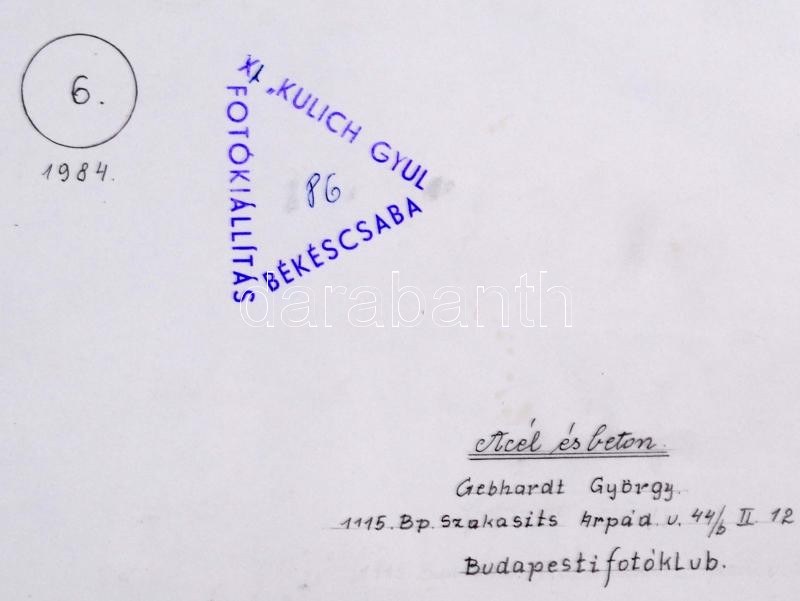 6.
1984.
XI. „KULICH GYUL
FOTÓKIÁLLÍTÁS
BÉKÉSCSABA
86
darabanth
Acél és beton.
Gebhardt György.
1115. Bp. Szakasits Árpád. u. 44/b II. 12
Budapesti fotóklub.